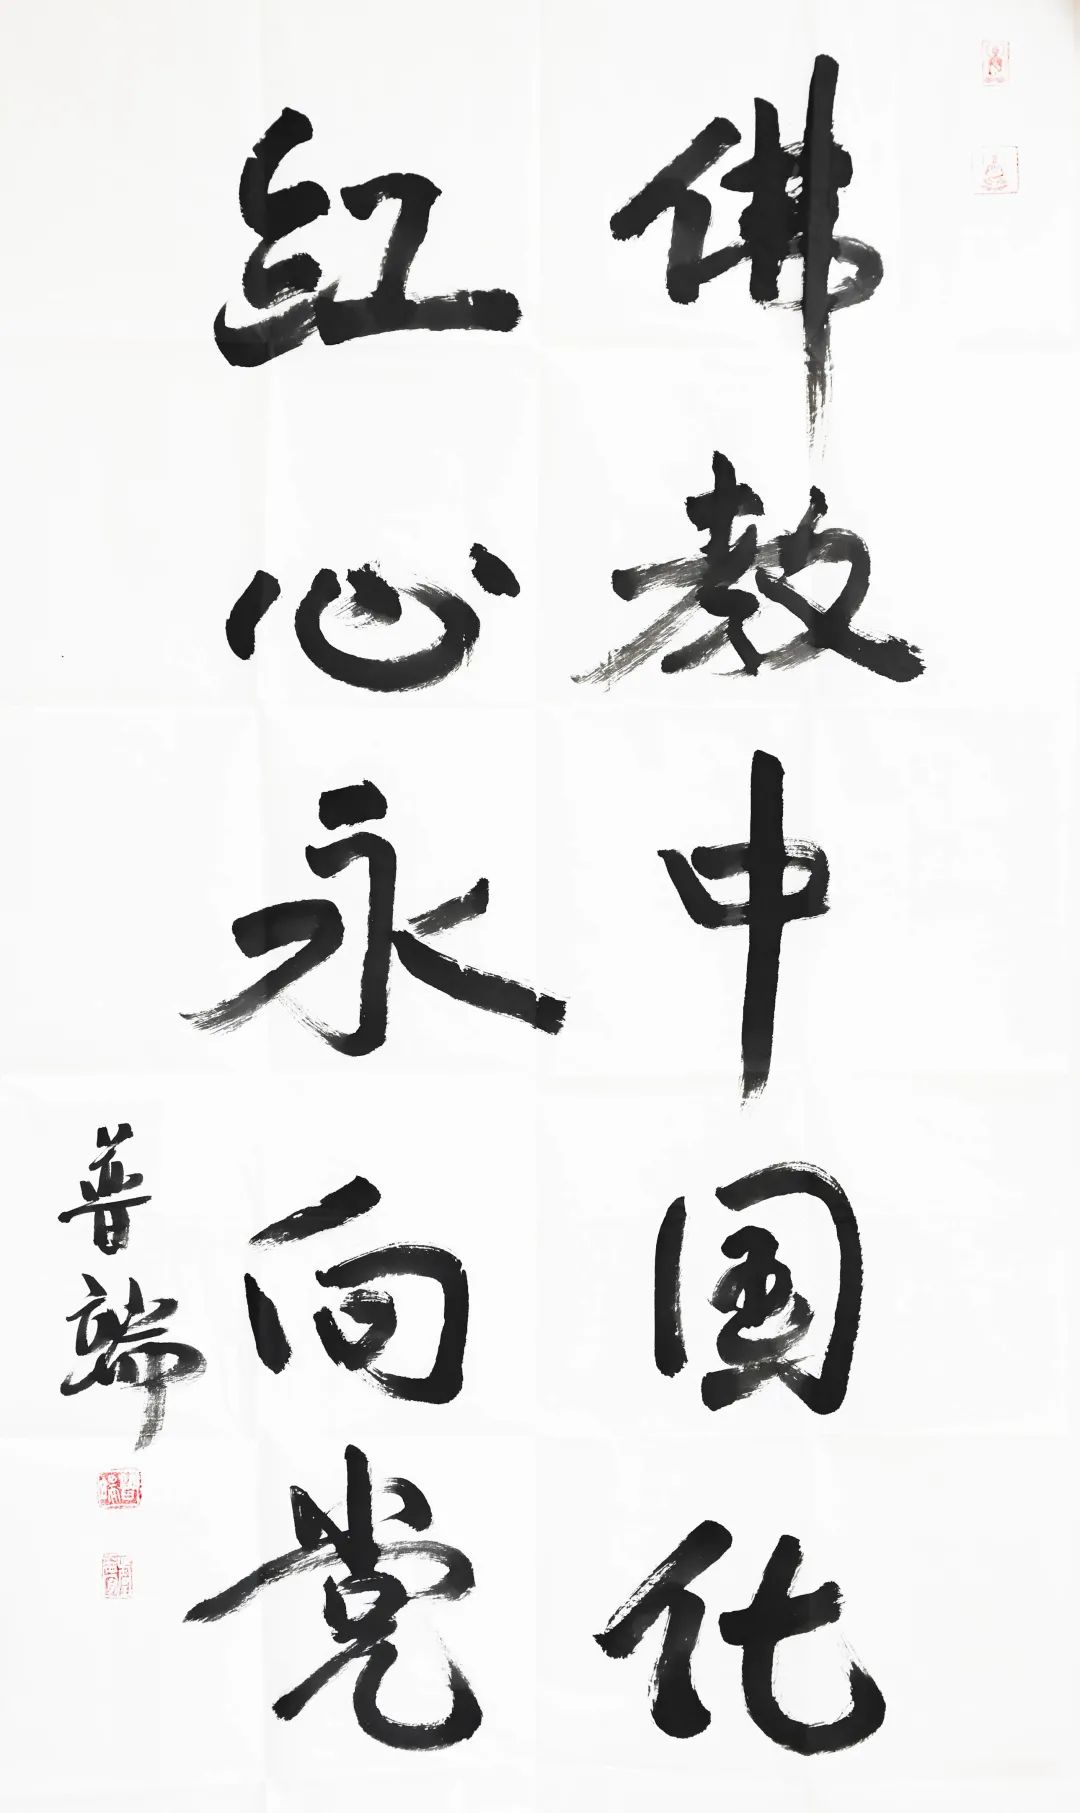 佛教中国化
红心永向党
普端